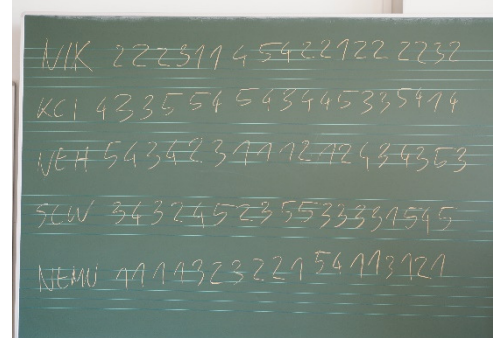 NIK 222311 4 5422122 2232
KCI 4335 54 54344533 5414
NEH 54342 3 1111212 434353
SLW 343245 2355333 31545
NEMU 1111323221 54113121